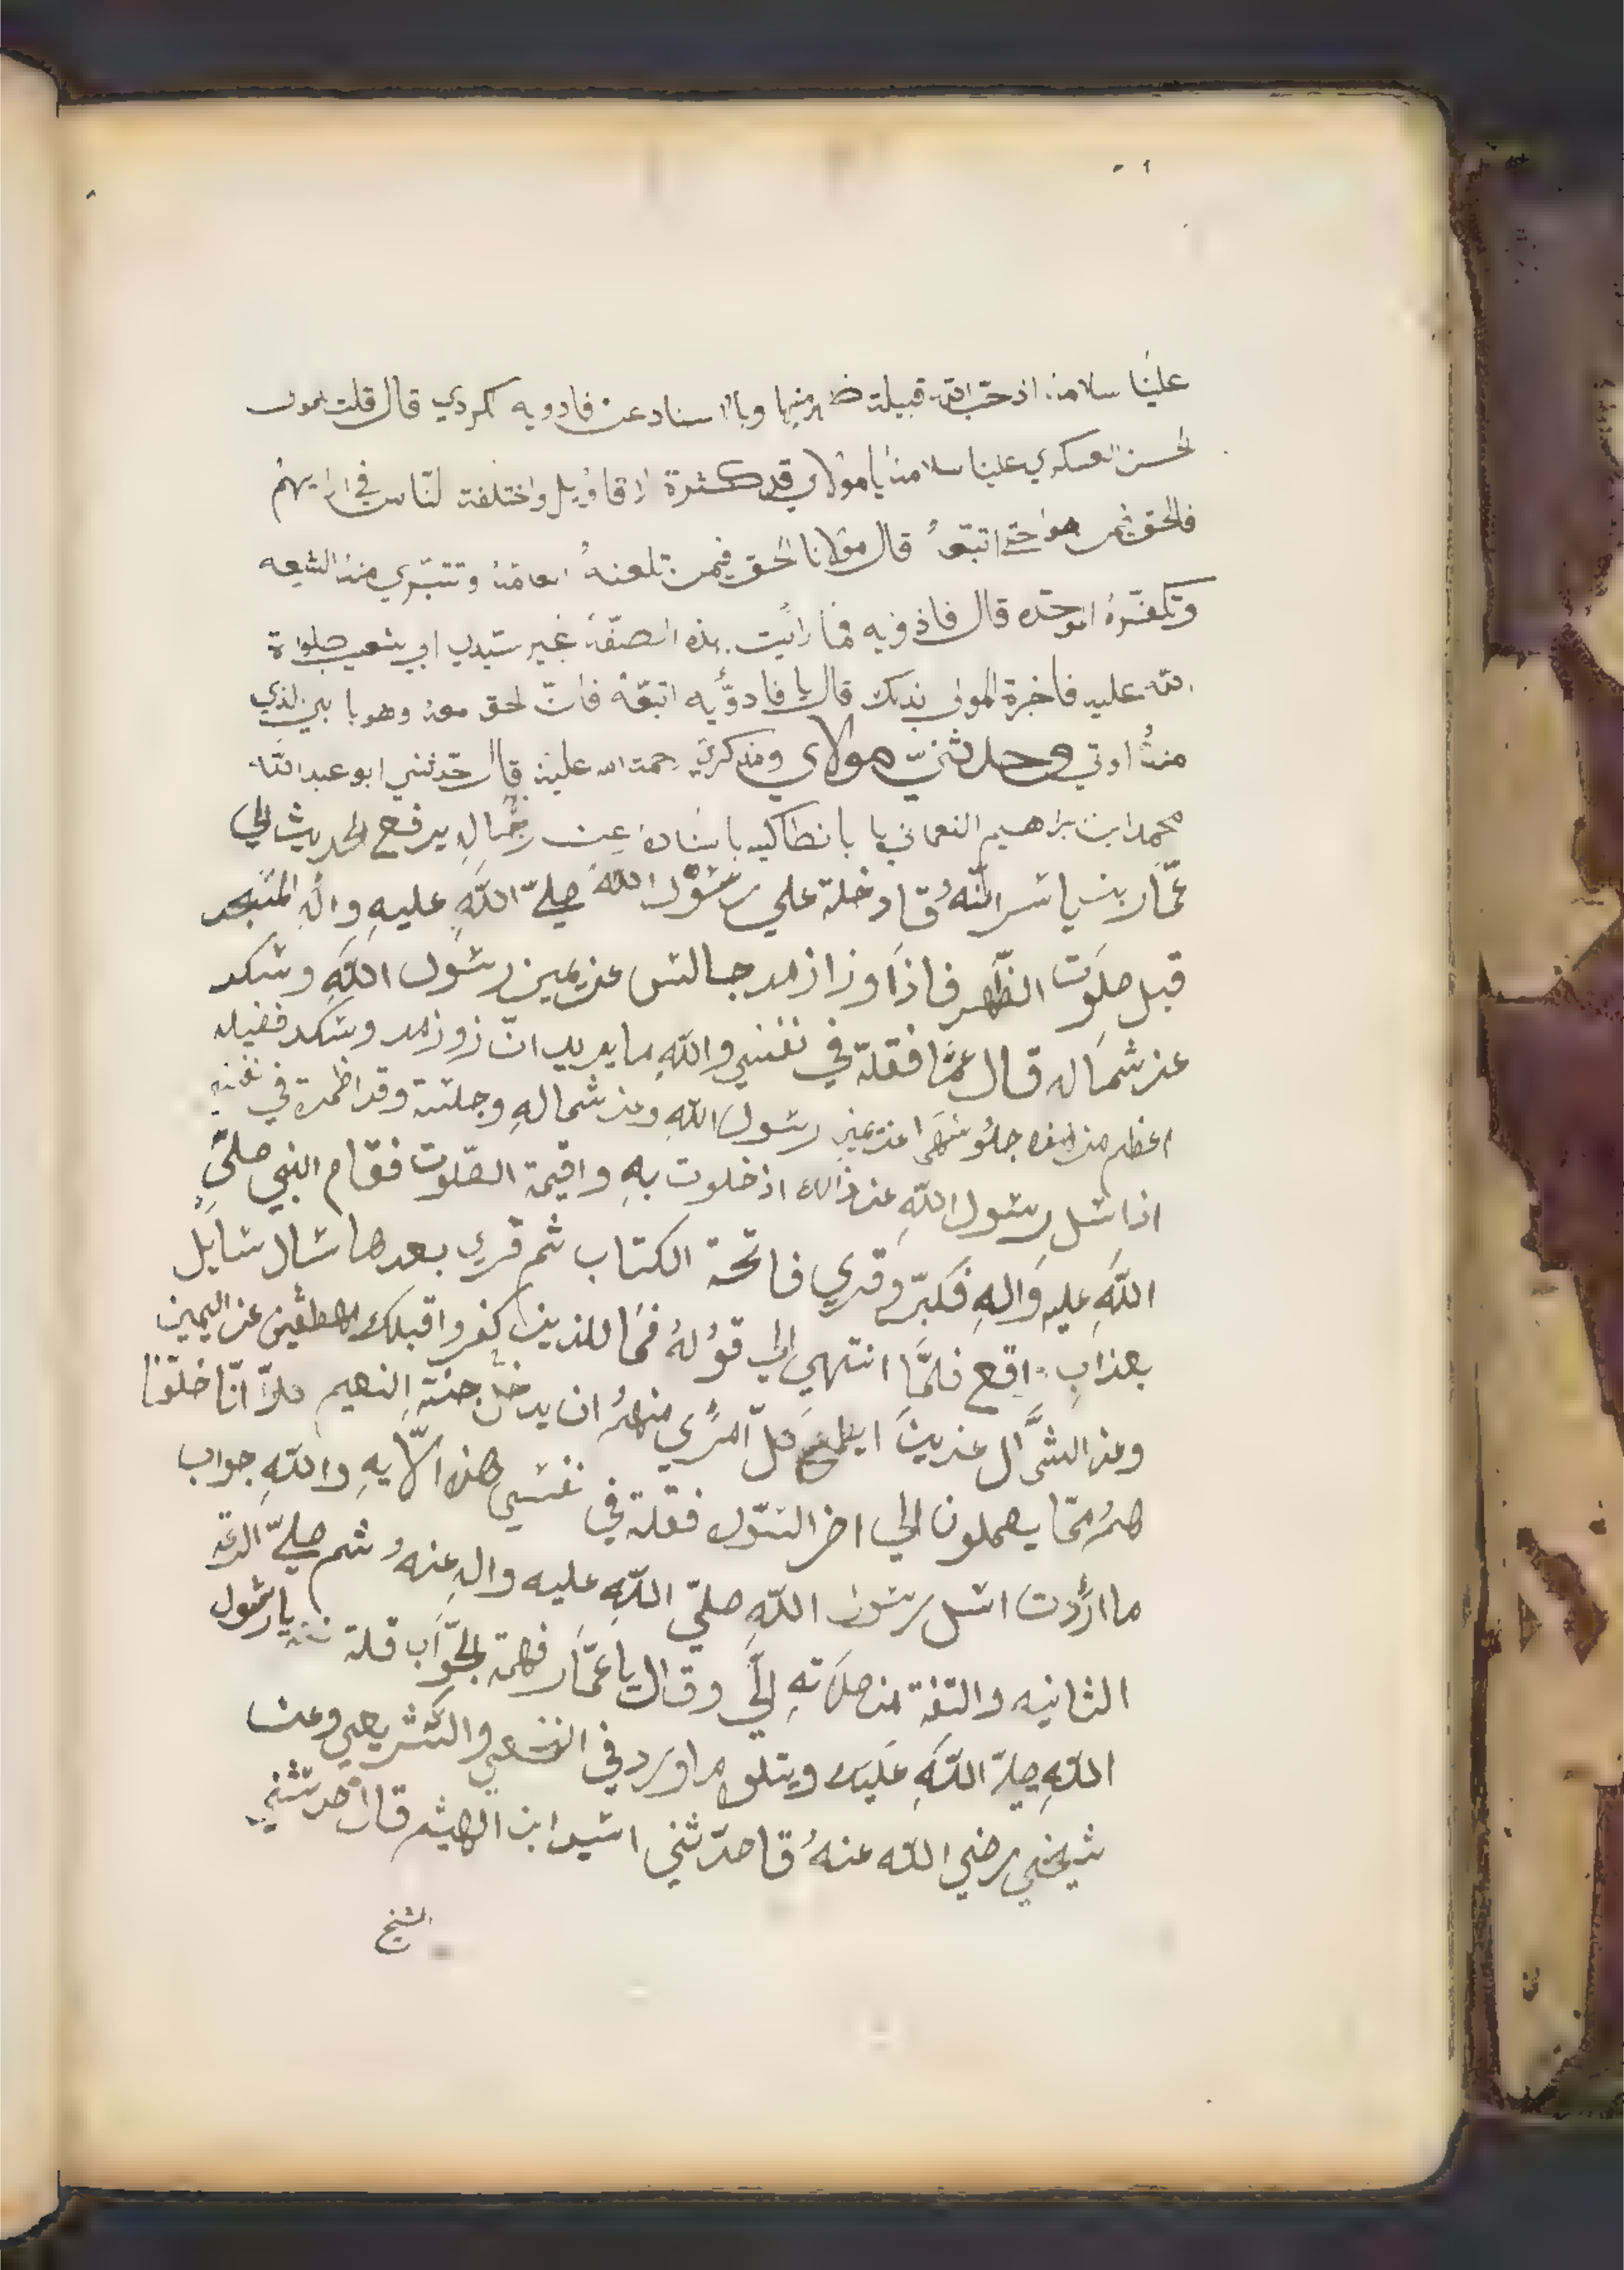 علينا سلامه اذ حب الله قبيلة ظهر منها وبالاسناد عن فادويه كردي قال قلت لمولى
لحسن العسكري علينا سلامه يا مولاي قد كثرة لاقاويل واختلفة لناس في ارايهم
فالحق فمن هو حتى اتبعهُ قال مولانا لحق فيمن تلعنهُ العامه وتتبري منه الشيعه
وتكفره الموحده قال فاذويه فما رايت بهذه الصفه غير سيدي ابي شعيب صلواة
الله عليه فاخبرة المولى بذلك قال يا فادويه اتبعه فانّ لحق معه وهو با بي لذي
منهُ اوتي وحدثني مولاي رحمت الله عليه قال حدثني ابو عبد الله
محمد ابن براهيم النعماني با بانطاكيه باسناده عن رجال يرفع لحديث الي
عمّار بن ياسر انّهُ قا دخلة علي رسول الله صلّى الله عليه واله المسجد
قبل صلوت الظهر فاذا وزازمد جالس عن يمين رسول الله وشكد
عن شماله قال عمّا فقلة في نفسي والله ما يريد انّ زوزمد وشكد فضيله
اعظم من هذه جلوسهما عن يمين رسول الله وعن شماله وجلسة وقد اظمرة في نفسي
اذا سل رسول الله عن ذالك اذ خلوت به واقيمة الصّلوت فقام النبي صلّى
الله عليه واله فكبّر وقري فاتحة الكتاب ثم قري بعدها سال سايل
بعذاب واقع فلمّا انتهي الي قولهُ فما للذين كفروا قبلك مهطعين عن اليمين
وعن الشمال عزين ايطمع كلّ امري منهم ان يدخل جنة النعيم كلاّ انّا خلقنا
هم ممّا يعملون الي اخر السّور فقلة في نفسي هذه الايه والله جواب
ما اردت اسل رسول الله صلّي الله عليه واله عنهُ ثم صلّي الركعة
الثانيه والتفة من صلاته اليّ وقال يا عمّار فهمة لجواب قلة نعم يا رسول
الله صلّا الله عليك ويتلو ما ورد في والشريعي وعن
شيخي رضي الله عنهُ قا حدّثني اسيد ابن الهيثم قال حدثني
الشيخ